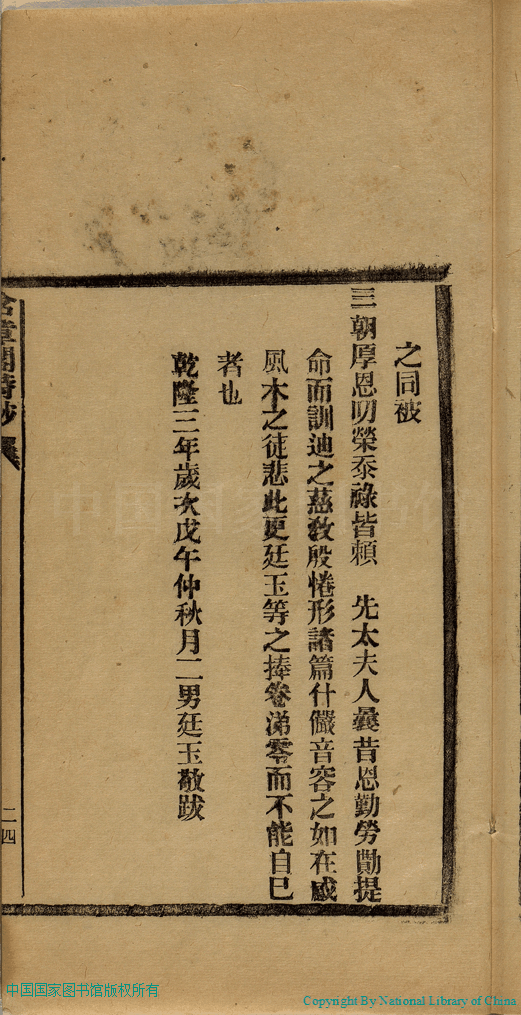 之同被
三朝厚恩叨榮忝祿皆賴 先太夫人曩昔恩勤勞勩提
命而訓迪之慈教殷惓形諸篇什儼音容之如在感
風木之徒悲此更廷玉等之捧卷涕零而不能自已
者也
乾隆三年歲次戊午仲秋月二男廷玉敬跋
含章閣詩鈔 跋
二四
中国国家图书馆
中国国家图书馆版权所有
Copyright By National Library of China